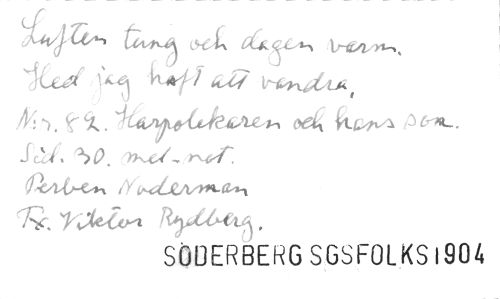 Luften tung och dagen varm.
Hed jag haft att vandra,
N:r. 82. Harpolekaren och hans son.
Sid. 30. mel-not.
Perben Noderman
Tx. Viktor Rydberg.
SÖDERBERG SGSFOLKS 1904